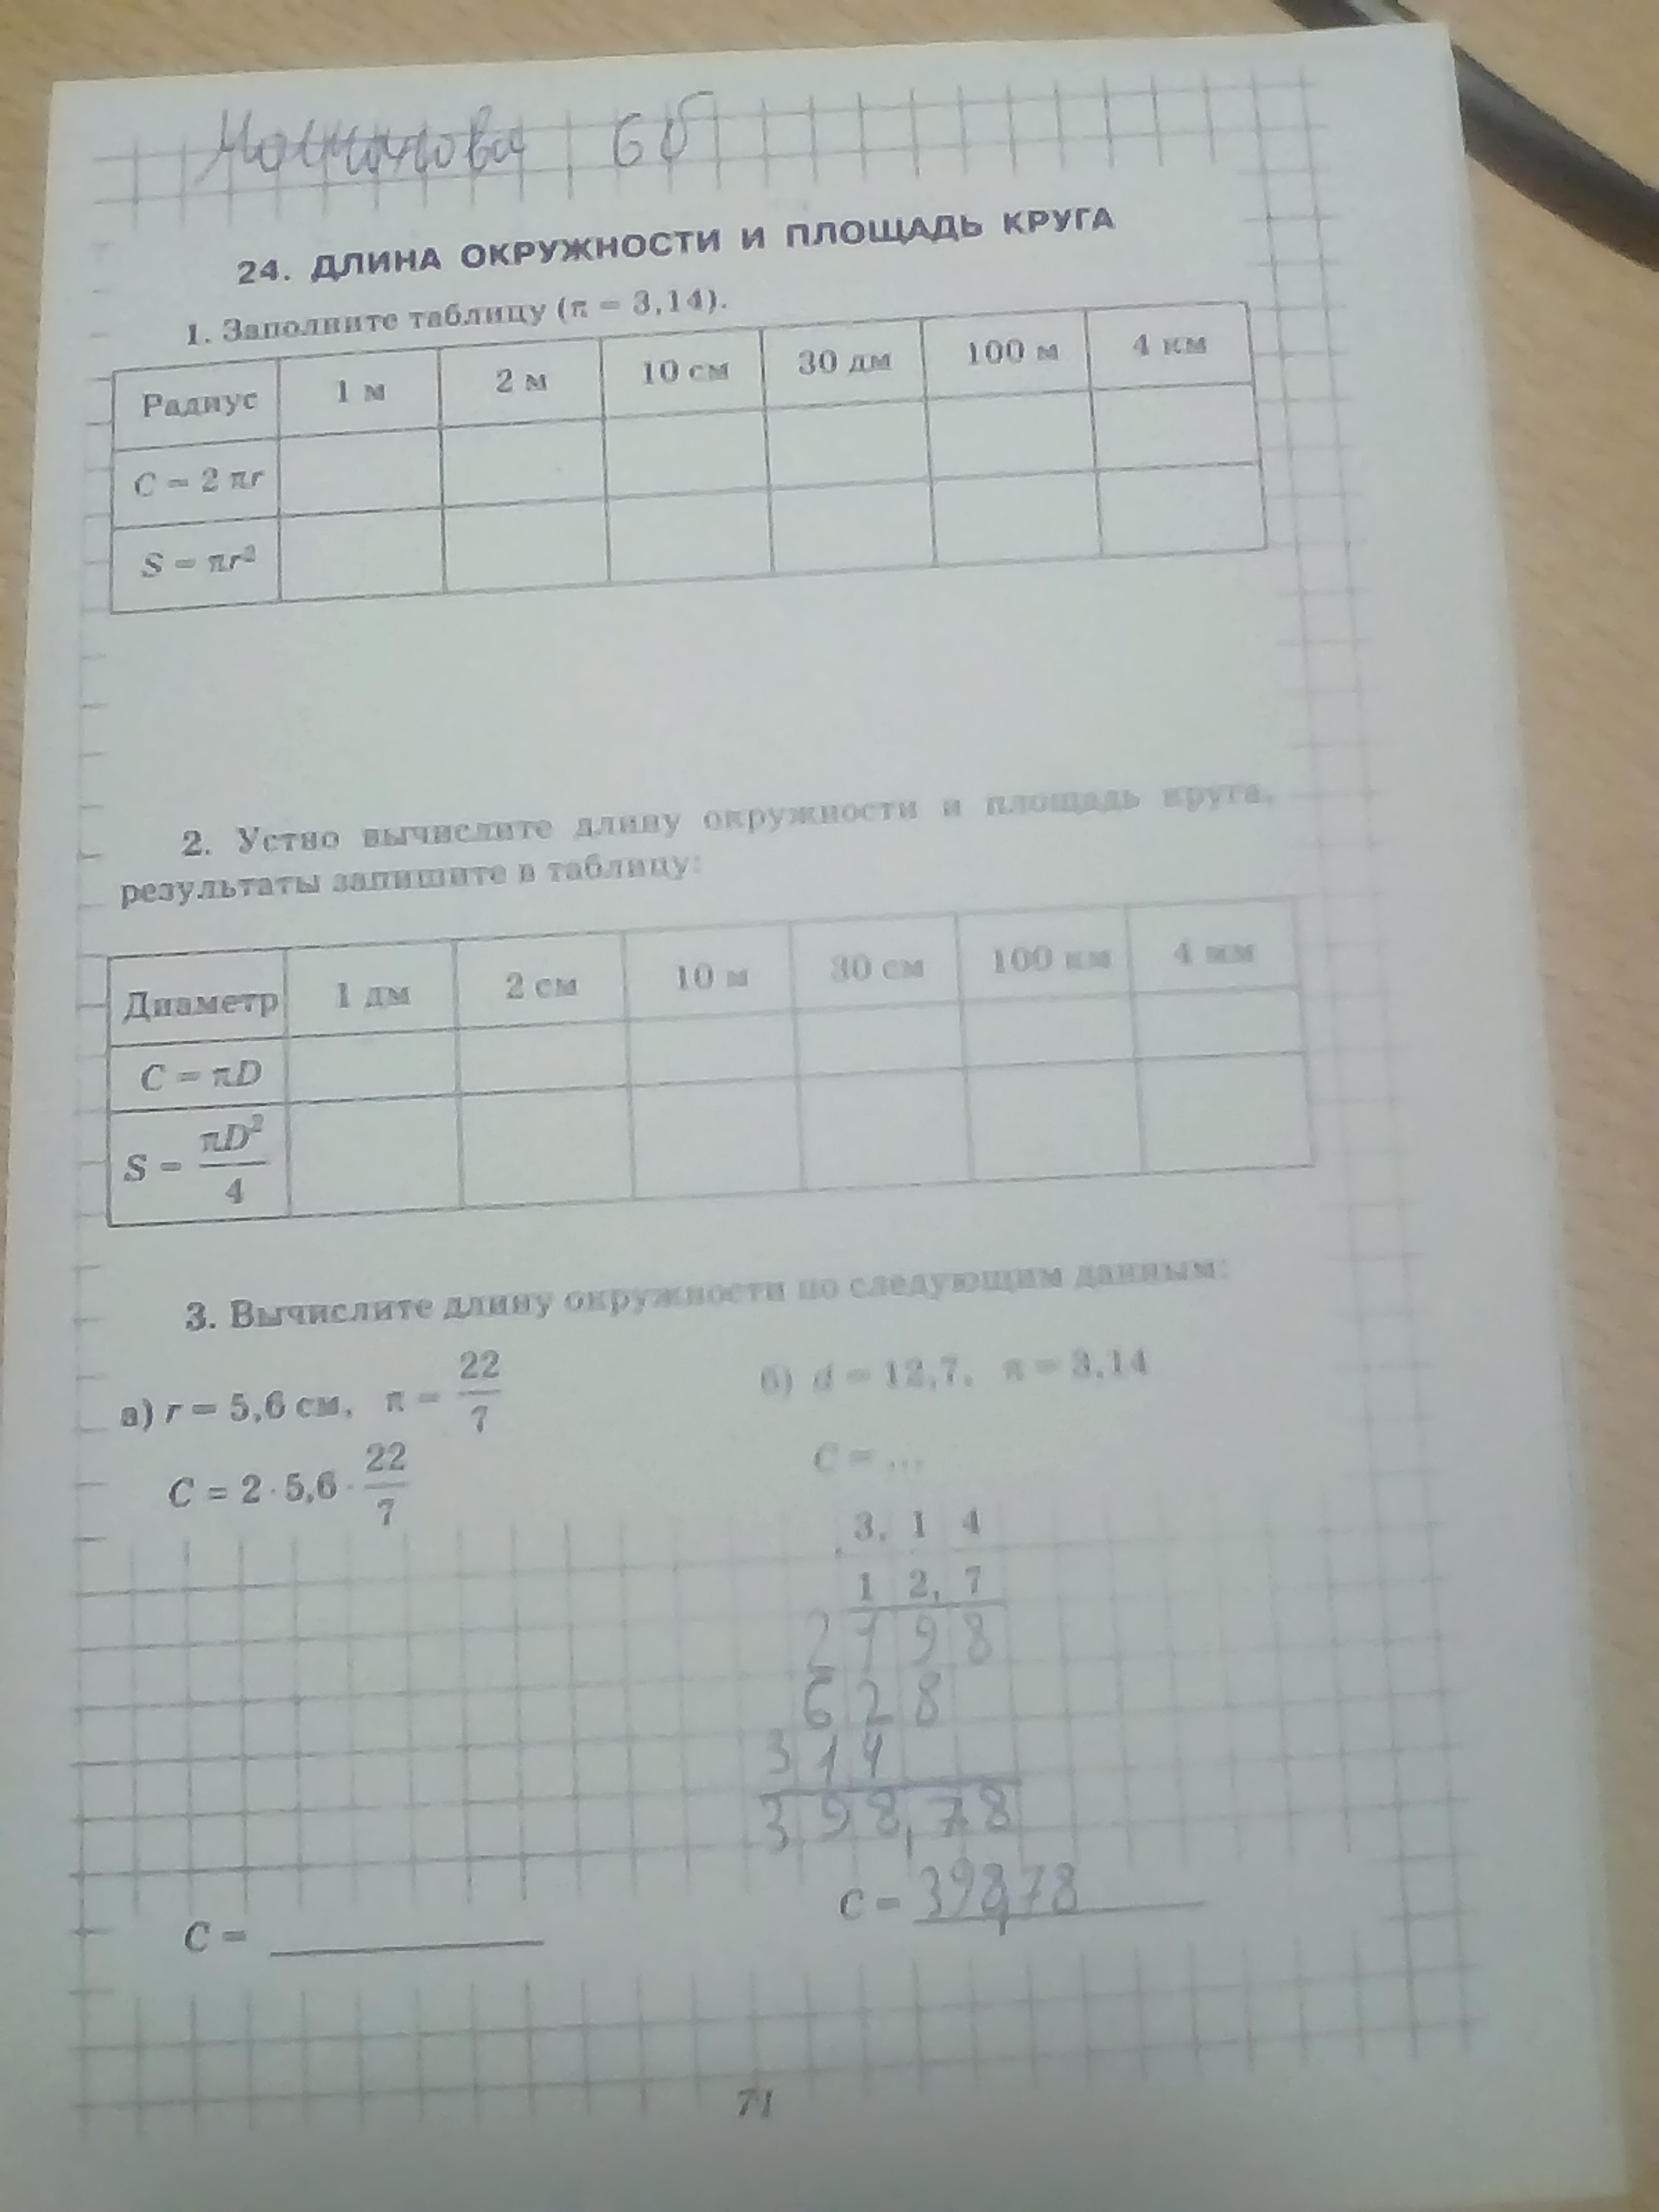 6б
24. ДЛИНА ОКРУЖНОСТИ И ПЛОЩАДЬ КРУГА
1. Заполните таблицу (π = 3,14).
Радиус 1 м 2 м 10 см 30 дм 100 м 4 км
C = 2 πr
S = πr²
2. Устно вычислите длину окружности и площадь круга,
результаты запишите в таблицу:
Диаметр 1 дм 2 см 10 м 30 см 100 км 4 мм
C = πD
S = πD²/4
3. Вычислите длину окружности по следующим данным:
а) r = 5,6 см, π = 22/7 б) d = 12,7, π = 3,14
C = 2 · 5,6 · 22/7 C = ...
3, 1 4
1 2, 7
2 7 9 8
6 2 8
3 1 4
3 9 8, 7 8
C = C = 398,78
71